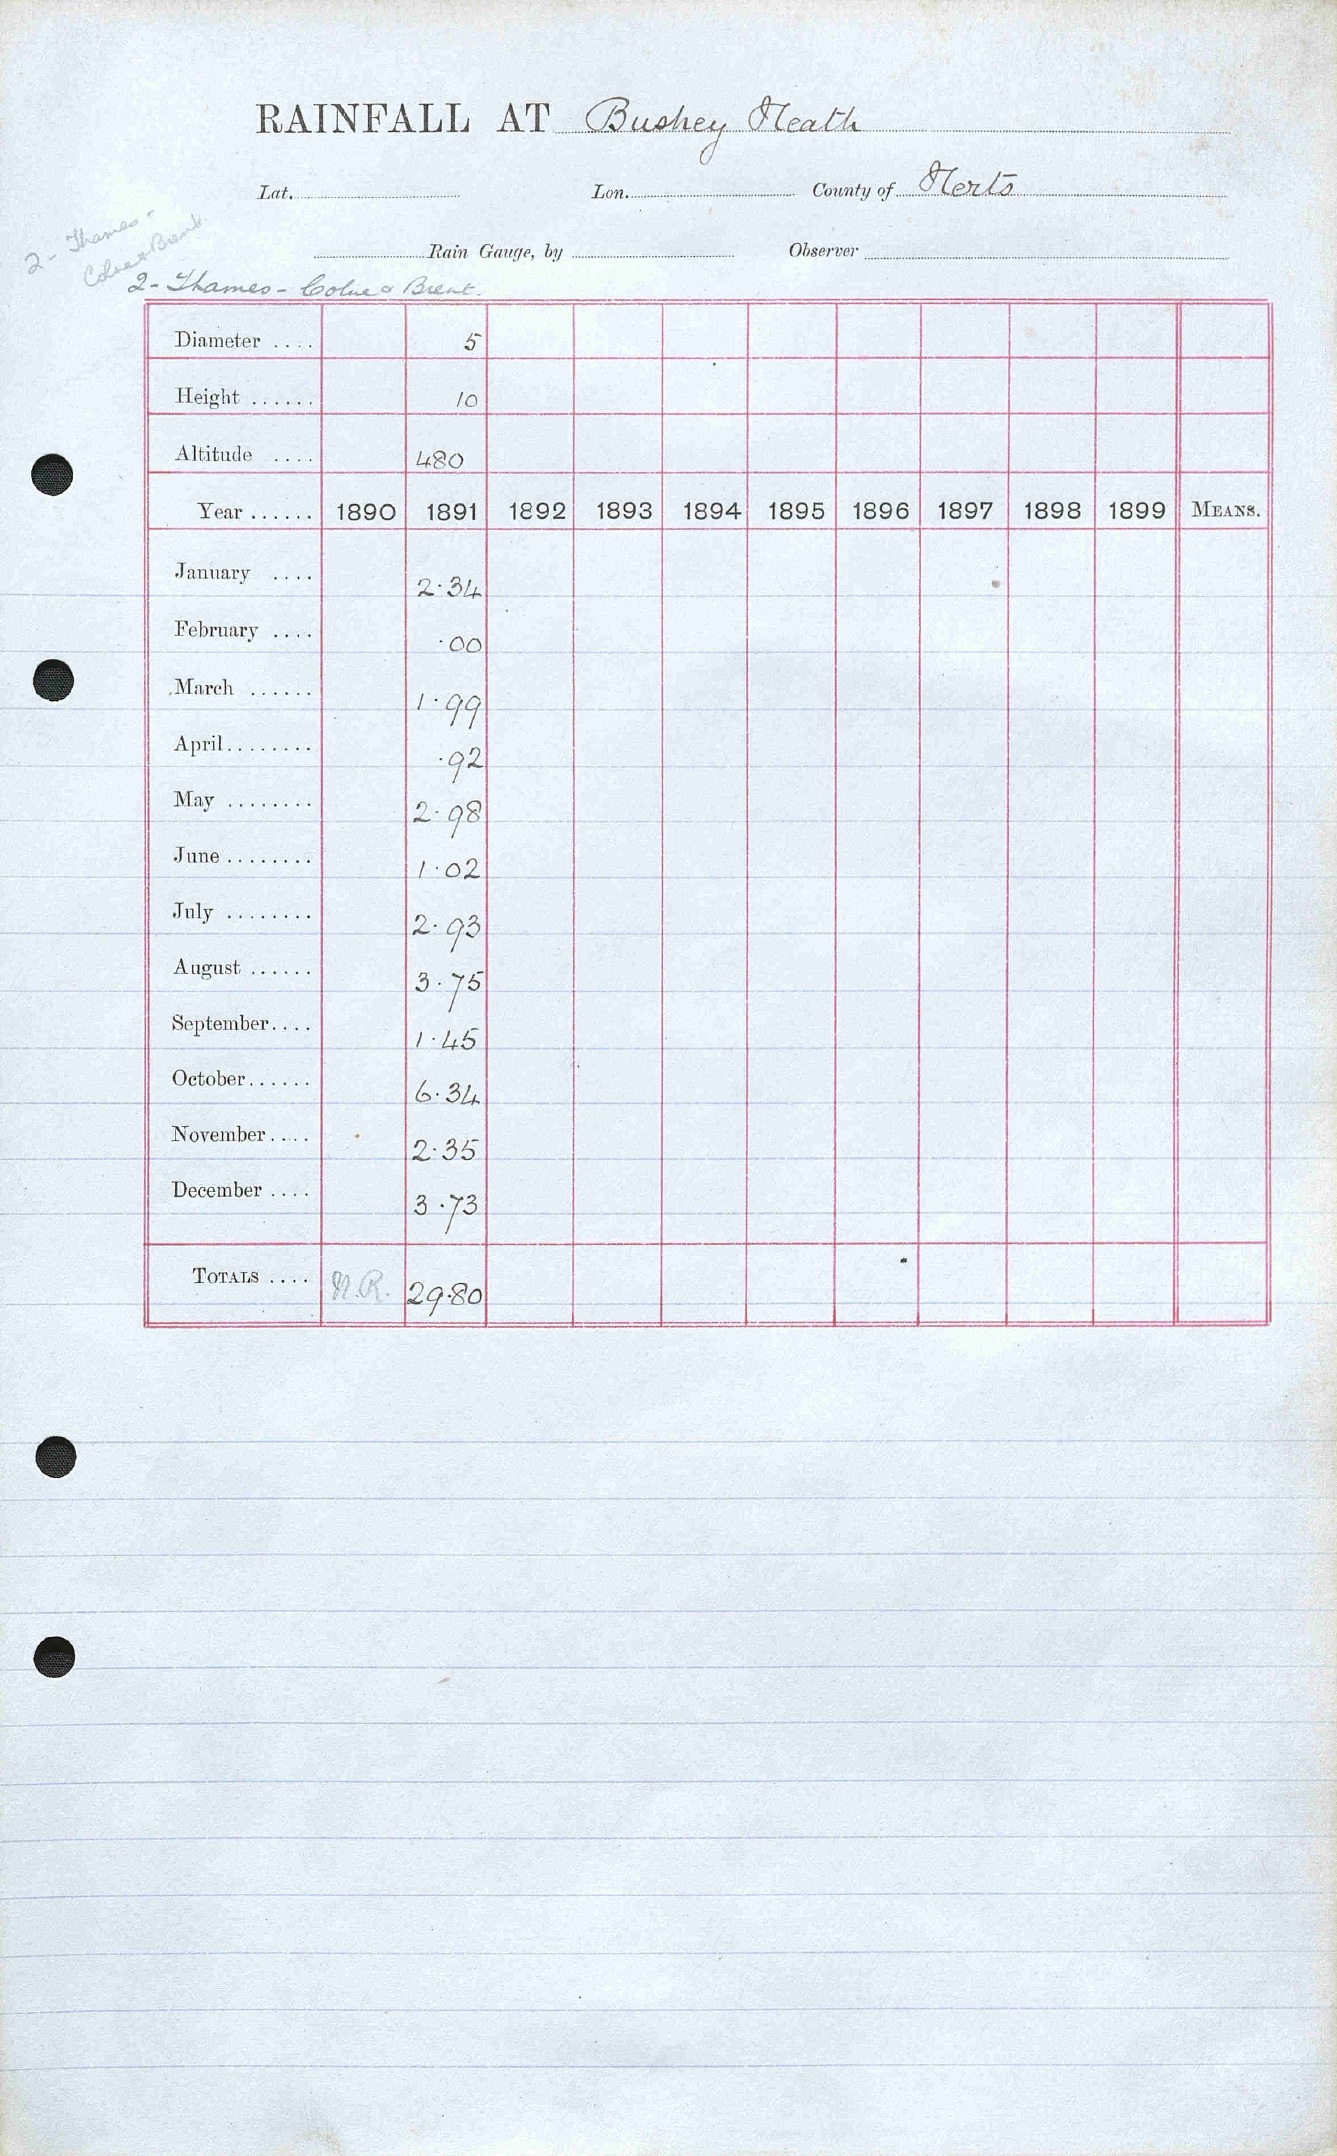 RAINFALL AT Bushey Heath
Lat. Lon. County of Herts
2 - Thames -
Colne & Brent.
Rain Gauge, by Observer
2 - Thames - Colne & Brent.
Diameter .... 5
Height ...... 10
Altitude .... 480
Year ...... 1890 1891 1892 1893 1894 1895 1896 1897 1898 1899 MEANS.
January .... 2.34
February .... .00
March ...... 1.99
April ........ .92
May ........ 2.98
June ........ 1.02
July ........ 2.93
August ...... 3.75
September .... 1.45
October ...... 6.34
November .... 2.35
December .... 3.73
TOTALS .... N.R. 29.80